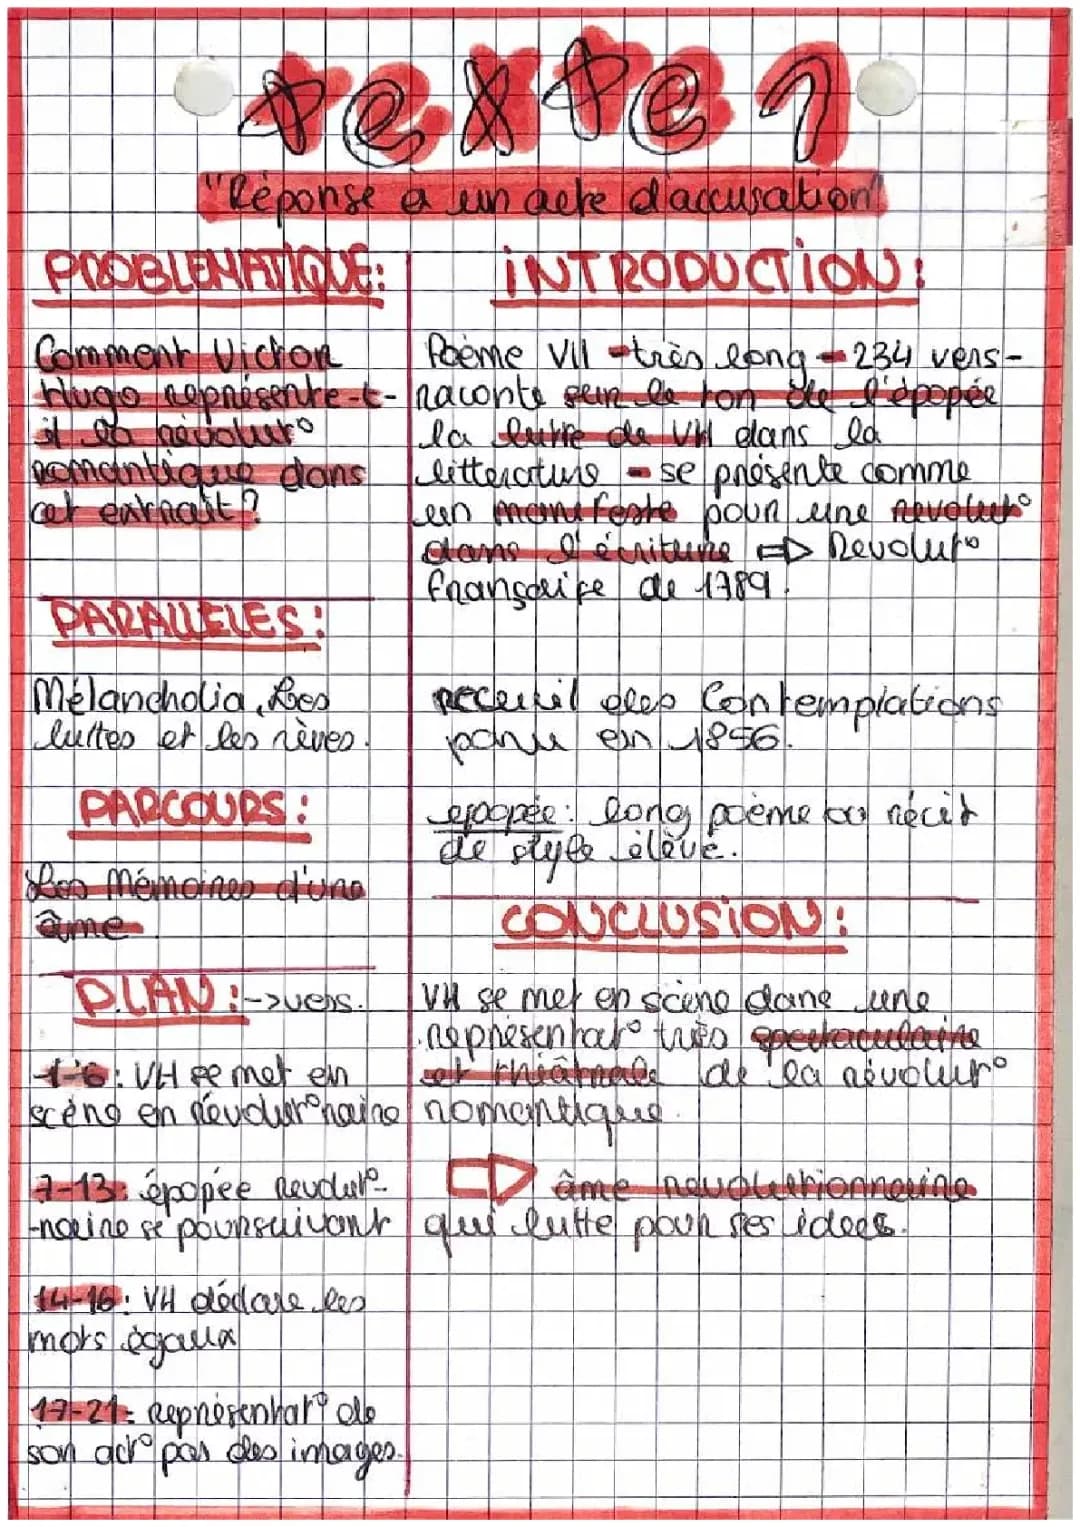 texte 1
"Réponse à un acte d'accusation"
PROBLEMATIQUE:
Comment Victor
Hugo représente-t-
il la révolut°
romantique dans
cet extrait?
PARALLELES:
Mélancholia, Les
luttes et les rêves.
PARCOURS:
Les Mémoires d'une
âme.
PLAN: -> vers.
1-6: VH se met en
scène en révolut°naire
7-13: épopée revolut°-
-naire se poursuivant
14-16: VH déclare les
mots égaux
17-21: Représentat° de
son act° par des images.
INTRODUCTION:
Poème VII - très long - 234 vers -
raconte sur le ton de l'épopée
la lutte de VH dans la
litterature - se présente comme
un manifeste pour une revolut°
dans l'écriture => Revolut°
française de 1789.
receuil des Contemplations
paru en 1856.
epopée: long poème ou récit
de style élevé.
CONCLUSION:
VH se met en scène dans une
représentat° très spectaculaire
et théâtrale de la révolut°
romantique.
=> âme revolutionnaire
qui lutte pour ses idées.